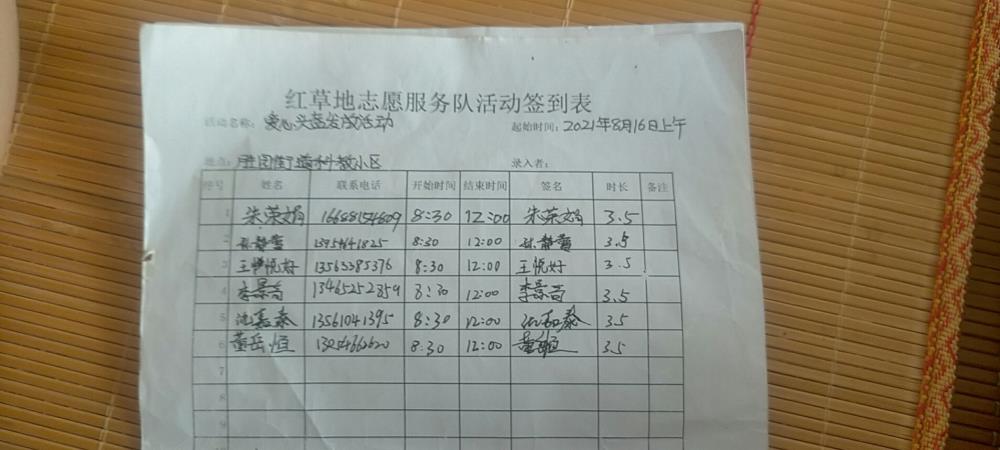 红草地志愿服务队活动签到表
活动名称：爱心头盔发放活动 起始时间：2021年8月16日上午
地点：胜园街道科教小区 录入者：
序号 姓名 联系电话 开始时间 结束时间 签名 时长 备注
1 朱荣娟 16688154609 8:30 12:00 朱荣娟 3.5
2 静 8:30 12:00 静 3.5
3 王悦好 13563385376 8:30 12:00 王悦好 3.5
4 李景 13465252359 8:30 12:00 李景 3.5
5 沈嘉泰 13561041395 8:30 12:00 泰 3.5
6 董岳恒 8:30 12:00 董恒 3.5
7
8
9